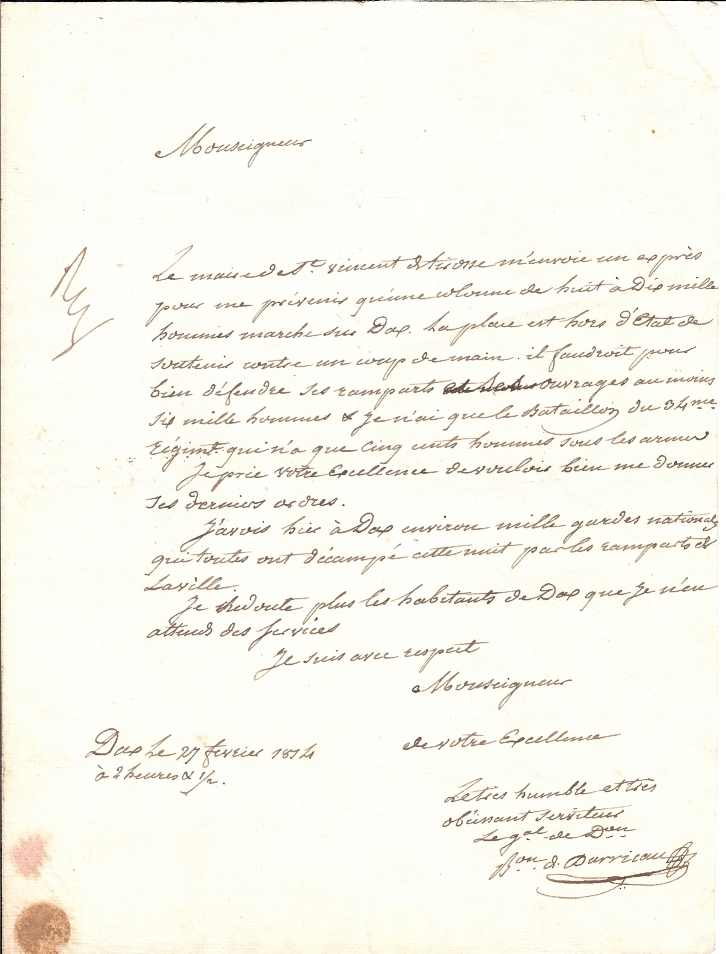 Monseigneur
Le maire de St. vincent de tirosse m'envoie un exprès
pour me prévenir qu'une colonne de huit à Dix mille
hommes marche sur Dax. La place est hors d'Etat de
soutenir contre un coup de main. il faudroit pour
bien défendre ses ramparts ouvrages au moins
six mille hommes & Je n'ai que le Bataillon du 34me
Régimt. qui n'a que cinq cents hommes sous les armes
Je prie votre Excellence de vouloir bien me donner
ses derniers ordres.
J'avois hier à Dax environ mille gardes nationales
qui toutes ont décampé cette nuit par les ramparts de
La ville.
Je Redoute plus les habitants de Dax que Je n'en
attends des services
Je suis avec respect
Monseigneur
de votre Excellence
Dax Le 27 fevrier 1814
à 2 heures & 1/2.
Le très humble et très
obéissant serviteur
Le gal de Don
Bon d. Darricau